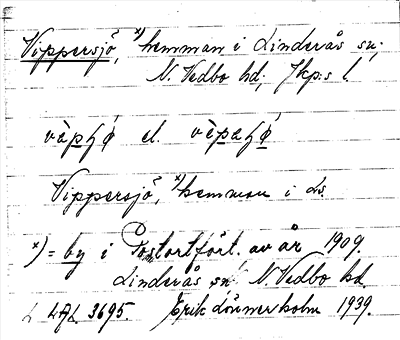 Vippersjö, x) hemman i Linderås sn;
N. Vedbo hd; Jkp:s l.
el.
Vippersjö, x) hemman i Ls.
x) = by i Postortfört. av år 1909.
Linderås sn; N. Vedbo hd.
LAL 3695. Erik Lönnerholm 1939.